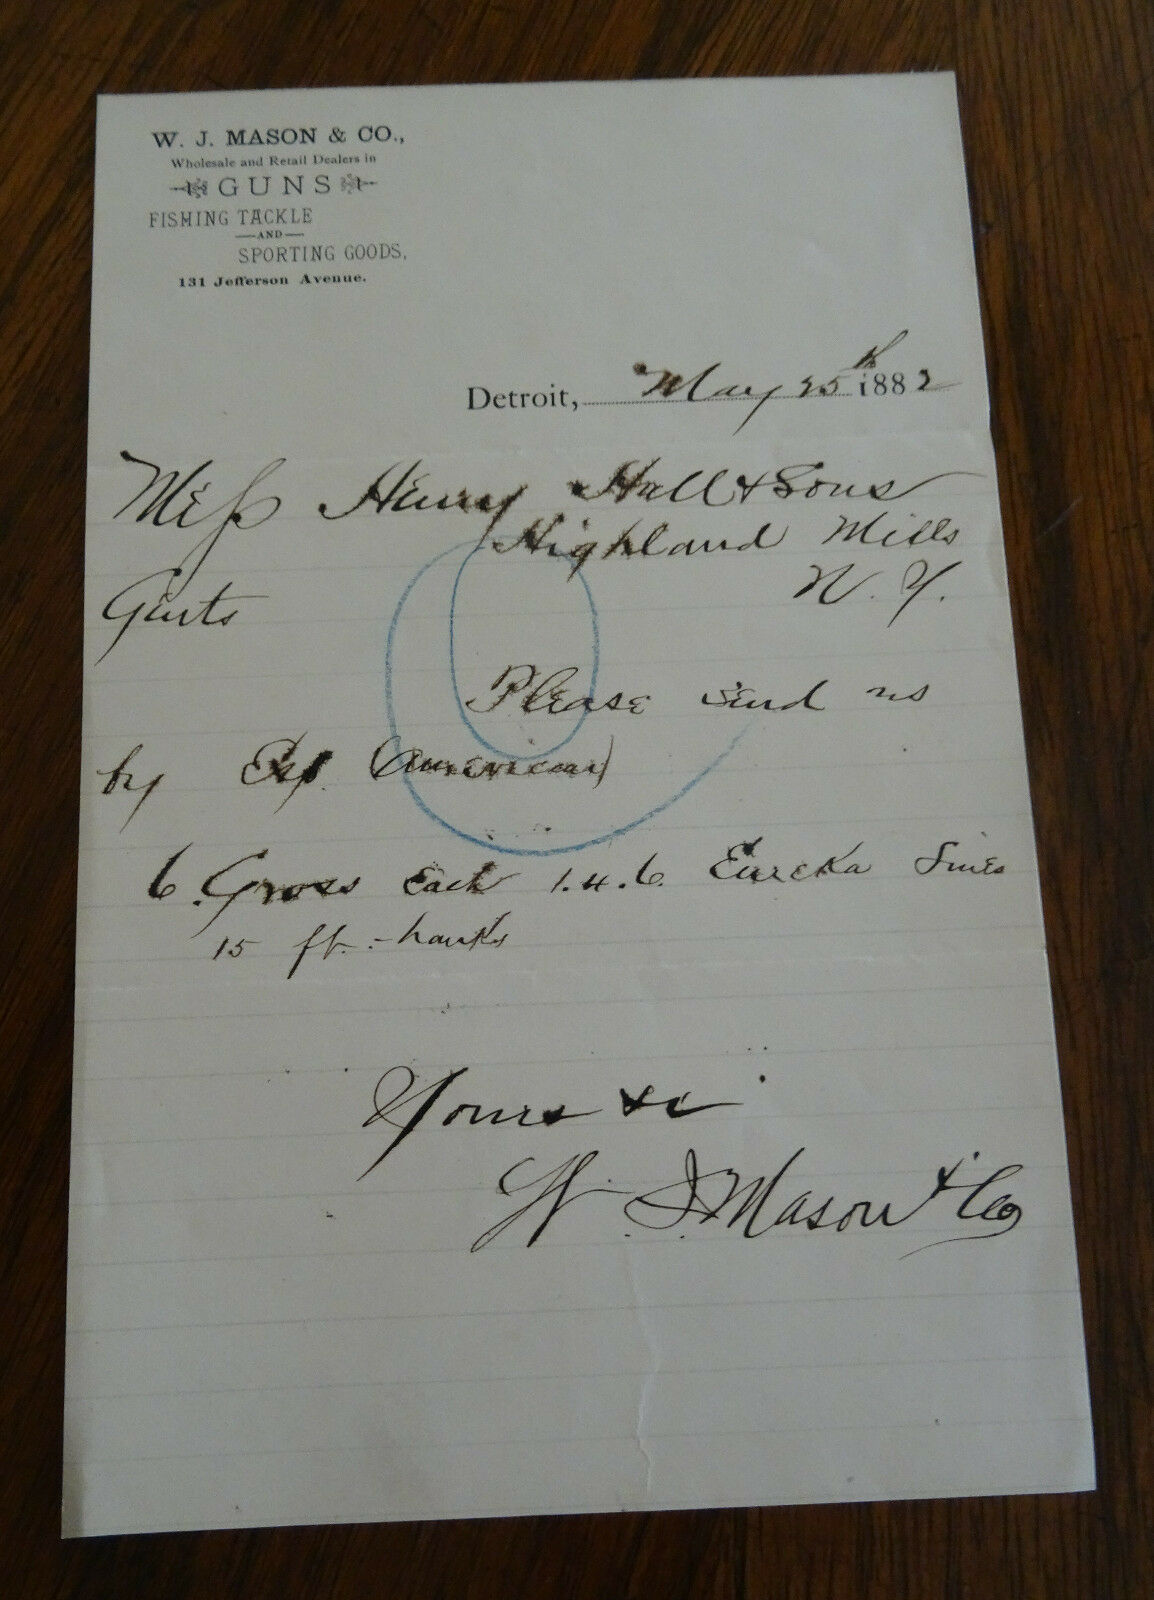 W. J. MASON & CO.,
Wholesale and Retail Dealers in
GUNS
FISHING TACKLE
AND
SPORTING GOODS,
131 Jefferson Avenue.
Detroit, May 25th 1882
Mess Henry Hall & Sons
Highland Mills
N. Y.
Gents
Please send us
by Exp. (American)
6. Gross each 1.4.6. Eureka Lines
15 ft. hanks
Yours &c
W. J. Mason & Co